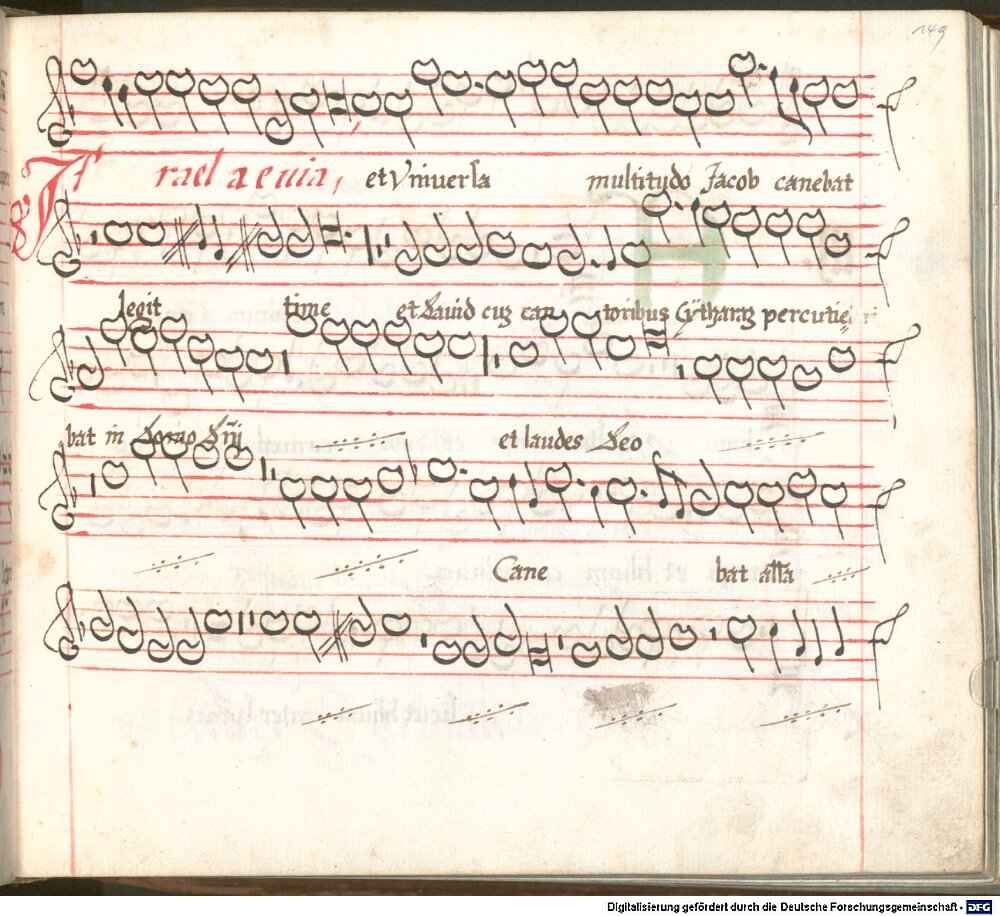 149
Israel a euia, et Vniuersa multitudo Jacob canebat
legit time et Dauid cuz can toribus Cÿtharaz percutie
bat in Domo Dnj et laudes Deo
Cane bat alla
Digitalisierung gefördert durch die Deutsche Forschungsgemeinschaft - DFG